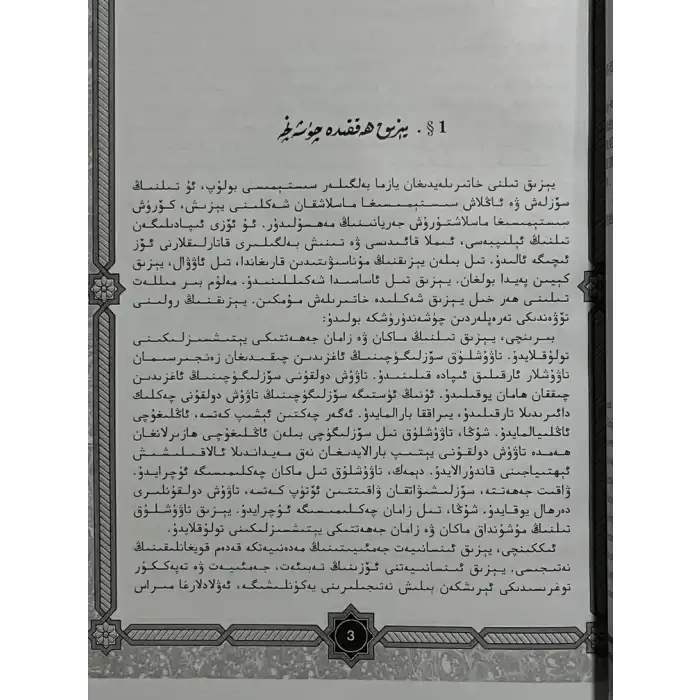 §1. يېزىق ھەققىدە چۈشەنچە
يېزىق تىلنى خاتىرىلەيدىغان يازما بەلگىلەر سىستېمىسى بولۇپ، ئۇ تىلنىڭ
سۆزلەش ۋە ئاڭلاش سىستېمىسىغا ماسلاشقان شەكلىنى يېزىش، كۆرۈش
سىستېمىسىغا ماسلاشتۇرۇش جەريانىنىڭ مەھسۇلىدۇر. ئۇ ئۆزى ئىپادىلىگەن
تىلنىڭ ئېلىپبەسى، ئىملا قائىدىسى ۋە تىنىش بەلگىلىرى قاتارلىقلارنى ئۆز
ئىچىگە ئالىدۇ. تىل بىلەن يېزىقنىڭ مۇناسىۋىتىدىن قارىغاندا، تىل ئاۋۋال، يېزىق
كېيىن پەيدا بولغان. يېزىق تىل ئاساسىدا شەكىللىنىدۇ. مەلۇم بىر مىللەت
تىلىنى ھەر خىل يېزىق شەكلىدە خاتىرىلەش مۇمكىن. يېزىقنىڭ رولىنى
تۆۋەندىكى تەرەپلەردىن چۈشەندۈرۈشكە بولىدۇ:
بىرىنچى، يېزىق تىلنىڭ ماكان ۋە زامان جەھەتتىكى يېتىشسىزلىكىنى
تولۇقلايدۇ. تاۋۇشلۇق سۆزلىگۈچىنىڭ ئاغزىدىن چىققىدىغان زەنجىرسىمان
تاۋۇشلار ئارقىلىق ئىپادە قىلىنىدۇ. تاۋۇش دولقۇنى سۆزلىگۈچىنىڭ ئاغزىدىن
چىققان ھامان يوقىلىدۇ. ئۇنىڭ ئۈستىگە سۆزلىگۈچىنىڭ تاۋۇش دولقۇنى چەكلىك
دائىرىدىلا تارقىلىدۇ، يىراققا بارالمايدۇ. ئەگەر چەكتىن ئېشىپ كەتسە، ئاڭلىغۇچى
ئاڭلىيالمايدۇ. شۇڭا، تاۋۇشلۇق تىل سۆزلىگۈچى بىلەن ئاڭلىغۇچى ھازىرلانغان
ھەمدە تاۋۇش دولقۇنى يېتىپ بارالايدىغان نەق مەيداندىلا ئالاقىلىشىش
ئېھتىياجىنى قاندۇرالايدۇ. دېمەك، تاۋۇشلۇق تىل ماكان چەكلىمىسىگە ئۇچرايدۇ.
ۋاقىت جەھەتتە، سۆزلىشىۋاتقان ۋاقىتتىن ئۆتۈپ كەتسە، تاۋۇش دولقۇنلىرى
دەرھال يوقايدۇ. شۇڭا، تىل زامان چەكلىمىسىگە ئۇچرايدۇ. يېزىق تاۋۇشلۇق
تىلنىڭ مۇشۇنداق ماكان ۋە زامان جەھەتتىكى يېتىشسىزلىكىنى تولۇقلايدۇ.
ئىككىنچى، يېزىق ئىنسانىيەت جەمئىيىتىنىڭ مەدەنىيەتكە قەدەم قويغانلىقىنىڭ
نەتىجىسى. يېزىق ئىنسانىيەتنى ئۆزىنىڭ تەبىئەت، جەمئىيەت ۋە تەپەككۇر
توغرىسىدىكى ئېرىشكەن بىلىش نەتىجىلىرىنى يەكۈنلىشىگە، ئەۋلادلارغا مىراس
3